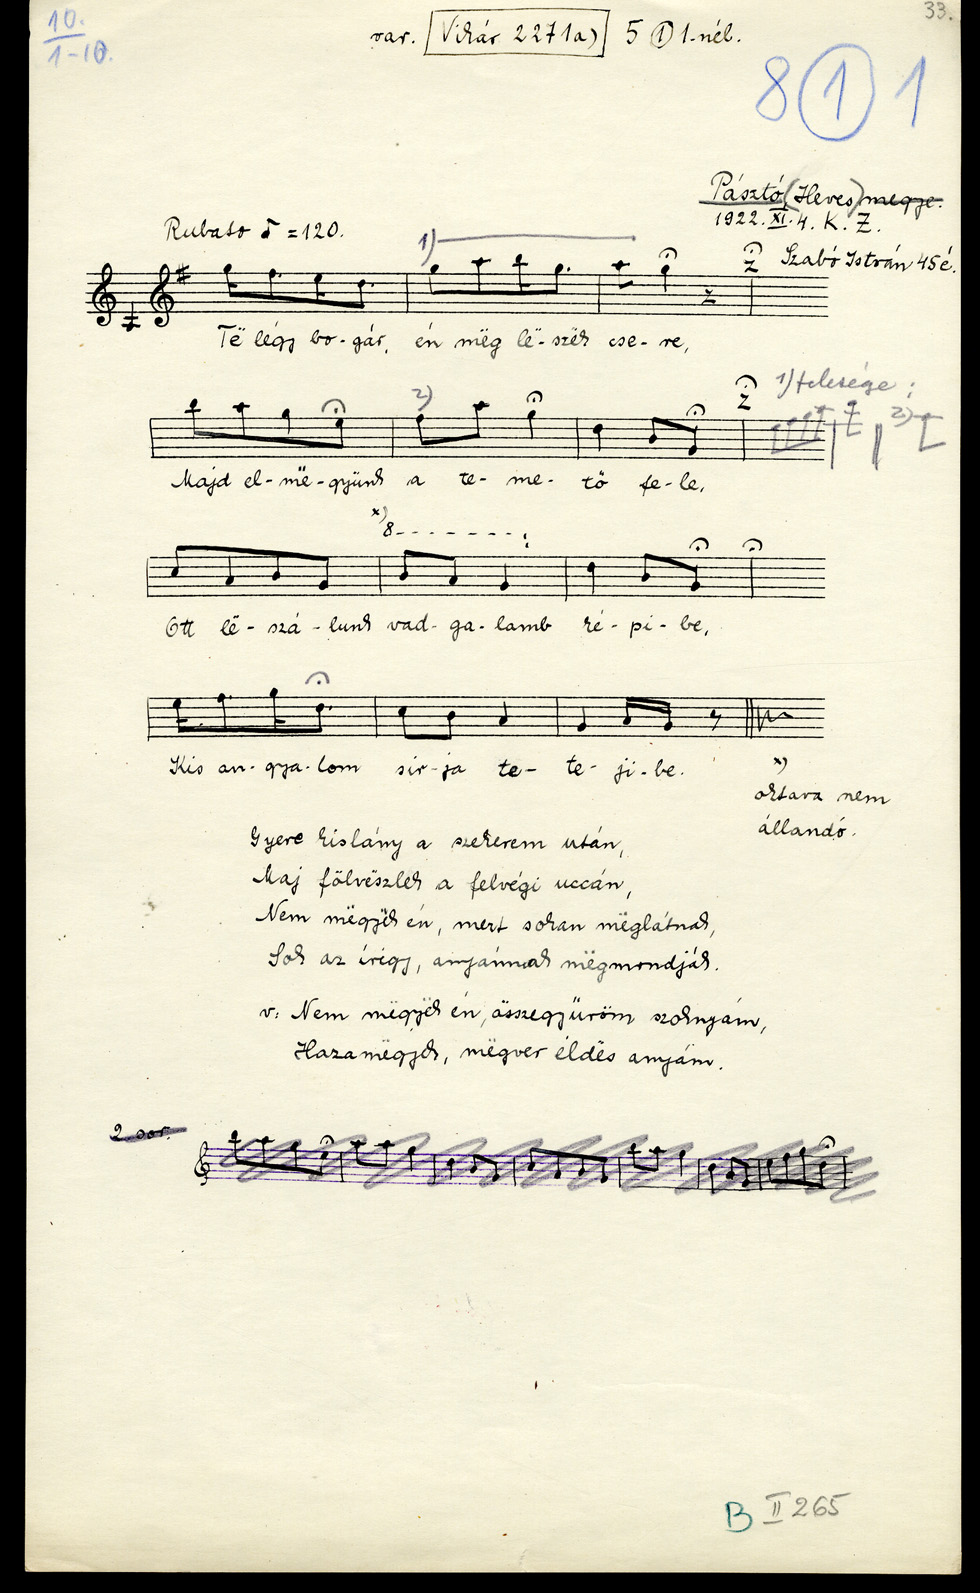 33.
10.
1-10.
var. Vikár 2271a) 5 1 1-nél.
8 1 1
Pásztó (Heves) megye.
1922. XI. 4. K. Z.
Szabó István 45 é.
Rubato =120.
1)
Të légy bo-gár, én mëg lë-szëk cse-re,
1) felesége:
2)
2)
Majd el-më-gyünk a te-me-tő fe-le,
x) 8
Ott lë-szá-lunk vad-ga-lamb ké-pi-be,
Kis an-gya-lom sír-ja te-te-ji-be.
x)
oktava nem
állandó.
Gyere kislány a szekerem után,
Maj fölvëszlek a felvégi uccán,
Nem mëgyëk én, mert sokan mëglátnak,
Sok az írigy, anyámnak mëgmondják.
v: Nem mëgyëk én, összegyűröm szoknyám,
Hazamëgyëk, mëgver éldës anyám.
2. sor.
B II 265